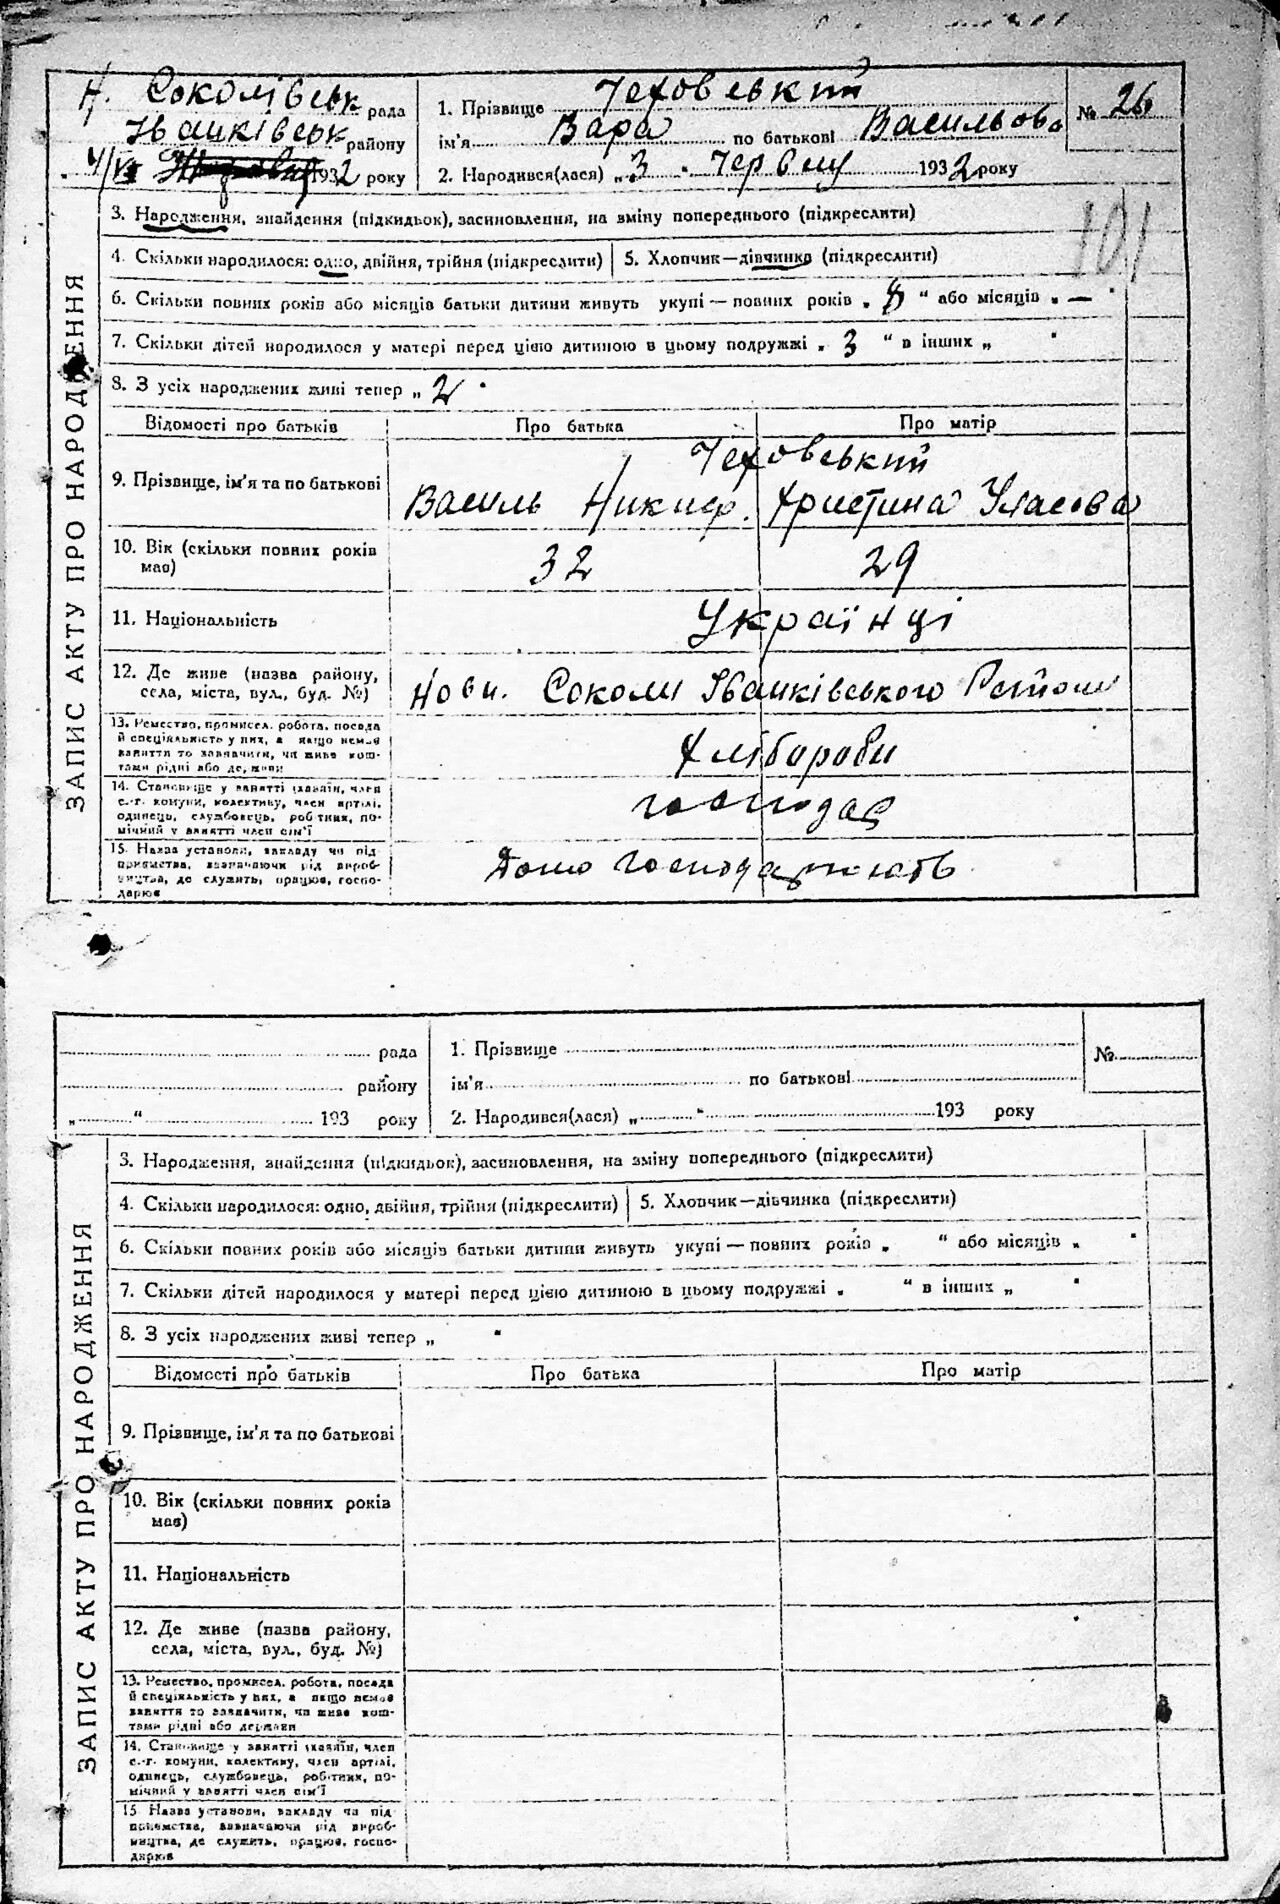 Н. Соколівськ рада
Іванківськ району
4/VI 1932 року
1. Прізвище Чеховський
ім'я Вара по батькові Васильова
2. Народився(лася) „3" Червня 1932 року
№ 26
101
ЗАПИС АКТУ ПРО НАРОДЖЕННЯ
3. Народження, знайдення (підкидьок), засиновлення, на зміну попереднього (підкреслити)
4. Скільки народилося: одно, двійня, трійня (підкреслити)
5. Хлопчик—дівчинка (підкреслити)
6. Скільки повних років або місяців батьки дитини живуть укупі — повних років „8" або місяців „—"
7. Скільки дітей народилося у матері перед цією дитиною в цьому подружжі „3" в інших „ "
8. З усіх народжених живі тепер „2"
Відомості про батьків
Про батька
Про матір
9. Прізвище, ім'я та по батькові
Чеховський
Василь Никиф. Христина Уласова
10. Вік (скільки повних років
має)
32
29
11. Національність
Українці
12. Де живе (назва району,
села, міста, вул., буд. №)
Нови. Соколи Іванківського Району
13. Ремество, промисел, робота, посада
й спеціяльність у них, а якщо немає
заняття то зазначити, чи живе кош-
тами рідні або держави
Хлібороби
14. Становище у занятті (хазяїн, член
с.-г. комуни, колективу, член артілі,
одинець, службовець, робітник, по-
мічний у занятті член сім'ї
господар
15. Назва установи, закладу чи під-
приємства, зазначаючи рід вироб-
ництва, де служить, працює, госпо-
дарює
Дома господарюють
рада
району
„ " 193 року
1. Прізвище
ім'я по батькові
2. Народився(лася) „ " 193 року
№
ЗАПИС АКТУ ПРО НАРОДЖЕННЯ
3. Народження, знайдення (підкидьок), засиновлення, на зміну попереднього (підкреслити)
4. Скільки народилося: одно, двійня, трійня (підкреслити)
5. Хлопчик—дівчинка (підкреслити)
6. Скільки повних років або місяців батьки дитини живуть укупі — повних років „ " або місяців „ "
7. Скільки дітей народилося у матері перед цією дитиною в цьому подружжі „ " в інших „ "
8. З усіх народжених живі тепер „ "
Відомості про батьків
Про батька
Про матір
9. Прізвище, ім'я та по батькові
10. Вік (скільки повних років
має)
11. Національність
12. Де живе (назва району,
села, міста, вул., буд. №)
13. Ремество, промисел, робота, посада
й спеціяльність у них, а якщо немає
заняття то зазначити, чи живе кош-
тами рідні або держави
14. Становище у занятті (хазяїн, член
с.-г. комуни, колективу, член артілі,
одинець, службовець, робітник, по-
мічний у занятті член сім'ї
15. Назва установи, закладу чи під-
приємства, зазначаючи рід вироб-
ництва, де служить, працює, госпо-
дарює